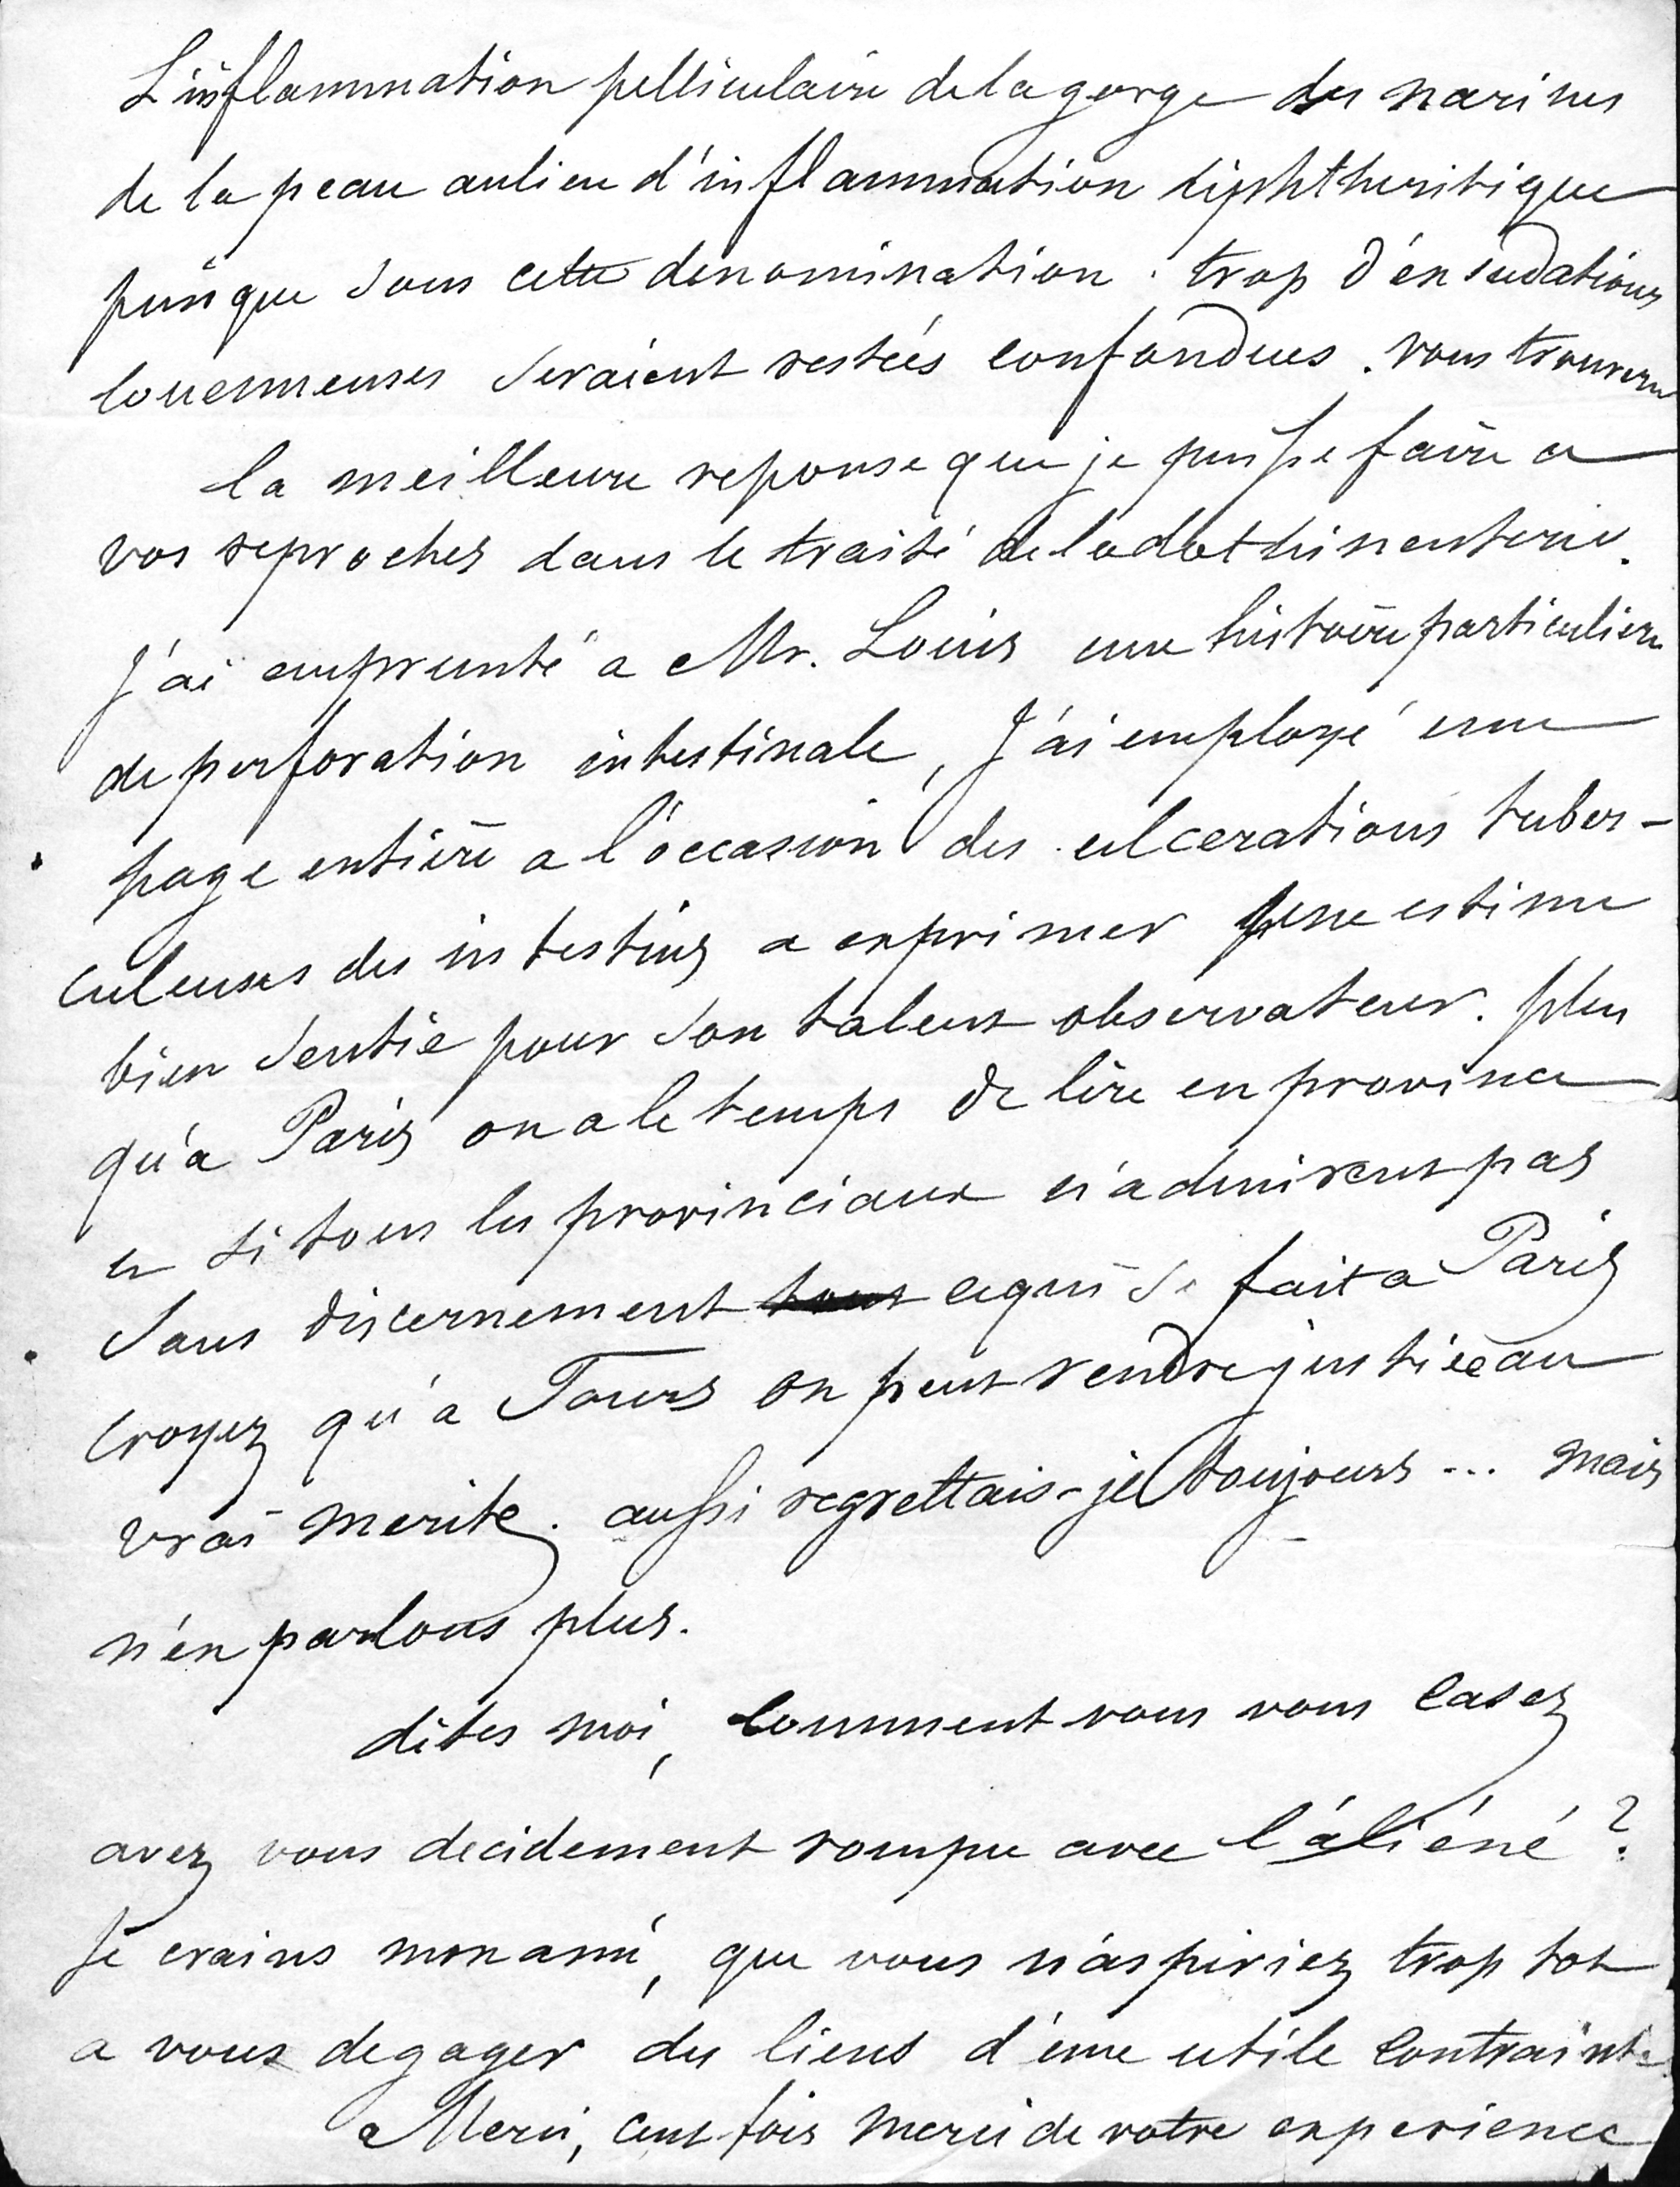 L'inflammation pelliculaire de la gorge des narines
de la peau au lieu d'inflammation diphtheritique
puisque sous cette denomination . trop d'exsudations
couenneuses seraient restées confondues . vous trouverez
la meilleure reponse que je puisse faire a
vos reproches dans le traité de la dothinenterie.
J'ai emprunté a Mr. Louis une histoire particuliere
de perforation intestinale, J'ai employé une
page entière a l'occasion des ulcerations tuber-
culeuses des intestins a exprimer une estime
bien sentie pour son talent observateur. plus
qu'a Paris on a le temps de lire en province
et si tous les provinciaux n'admirent pas
sans discernement tout ce qui se fait a Paris
croyez qu'a Tours on peut rendre justice au
vrai merite. aussi regrettais-je toujours ... mais
n'en parlons plus.
dites moi, comment vous vous casez
avez vous decidement rompu avec l'aliéné ?
Je crains mon ami, que vous n'aspiriez trop tot
a vous degager des liens d'une utile contrainte
Merci, cent fois merci de votre experience